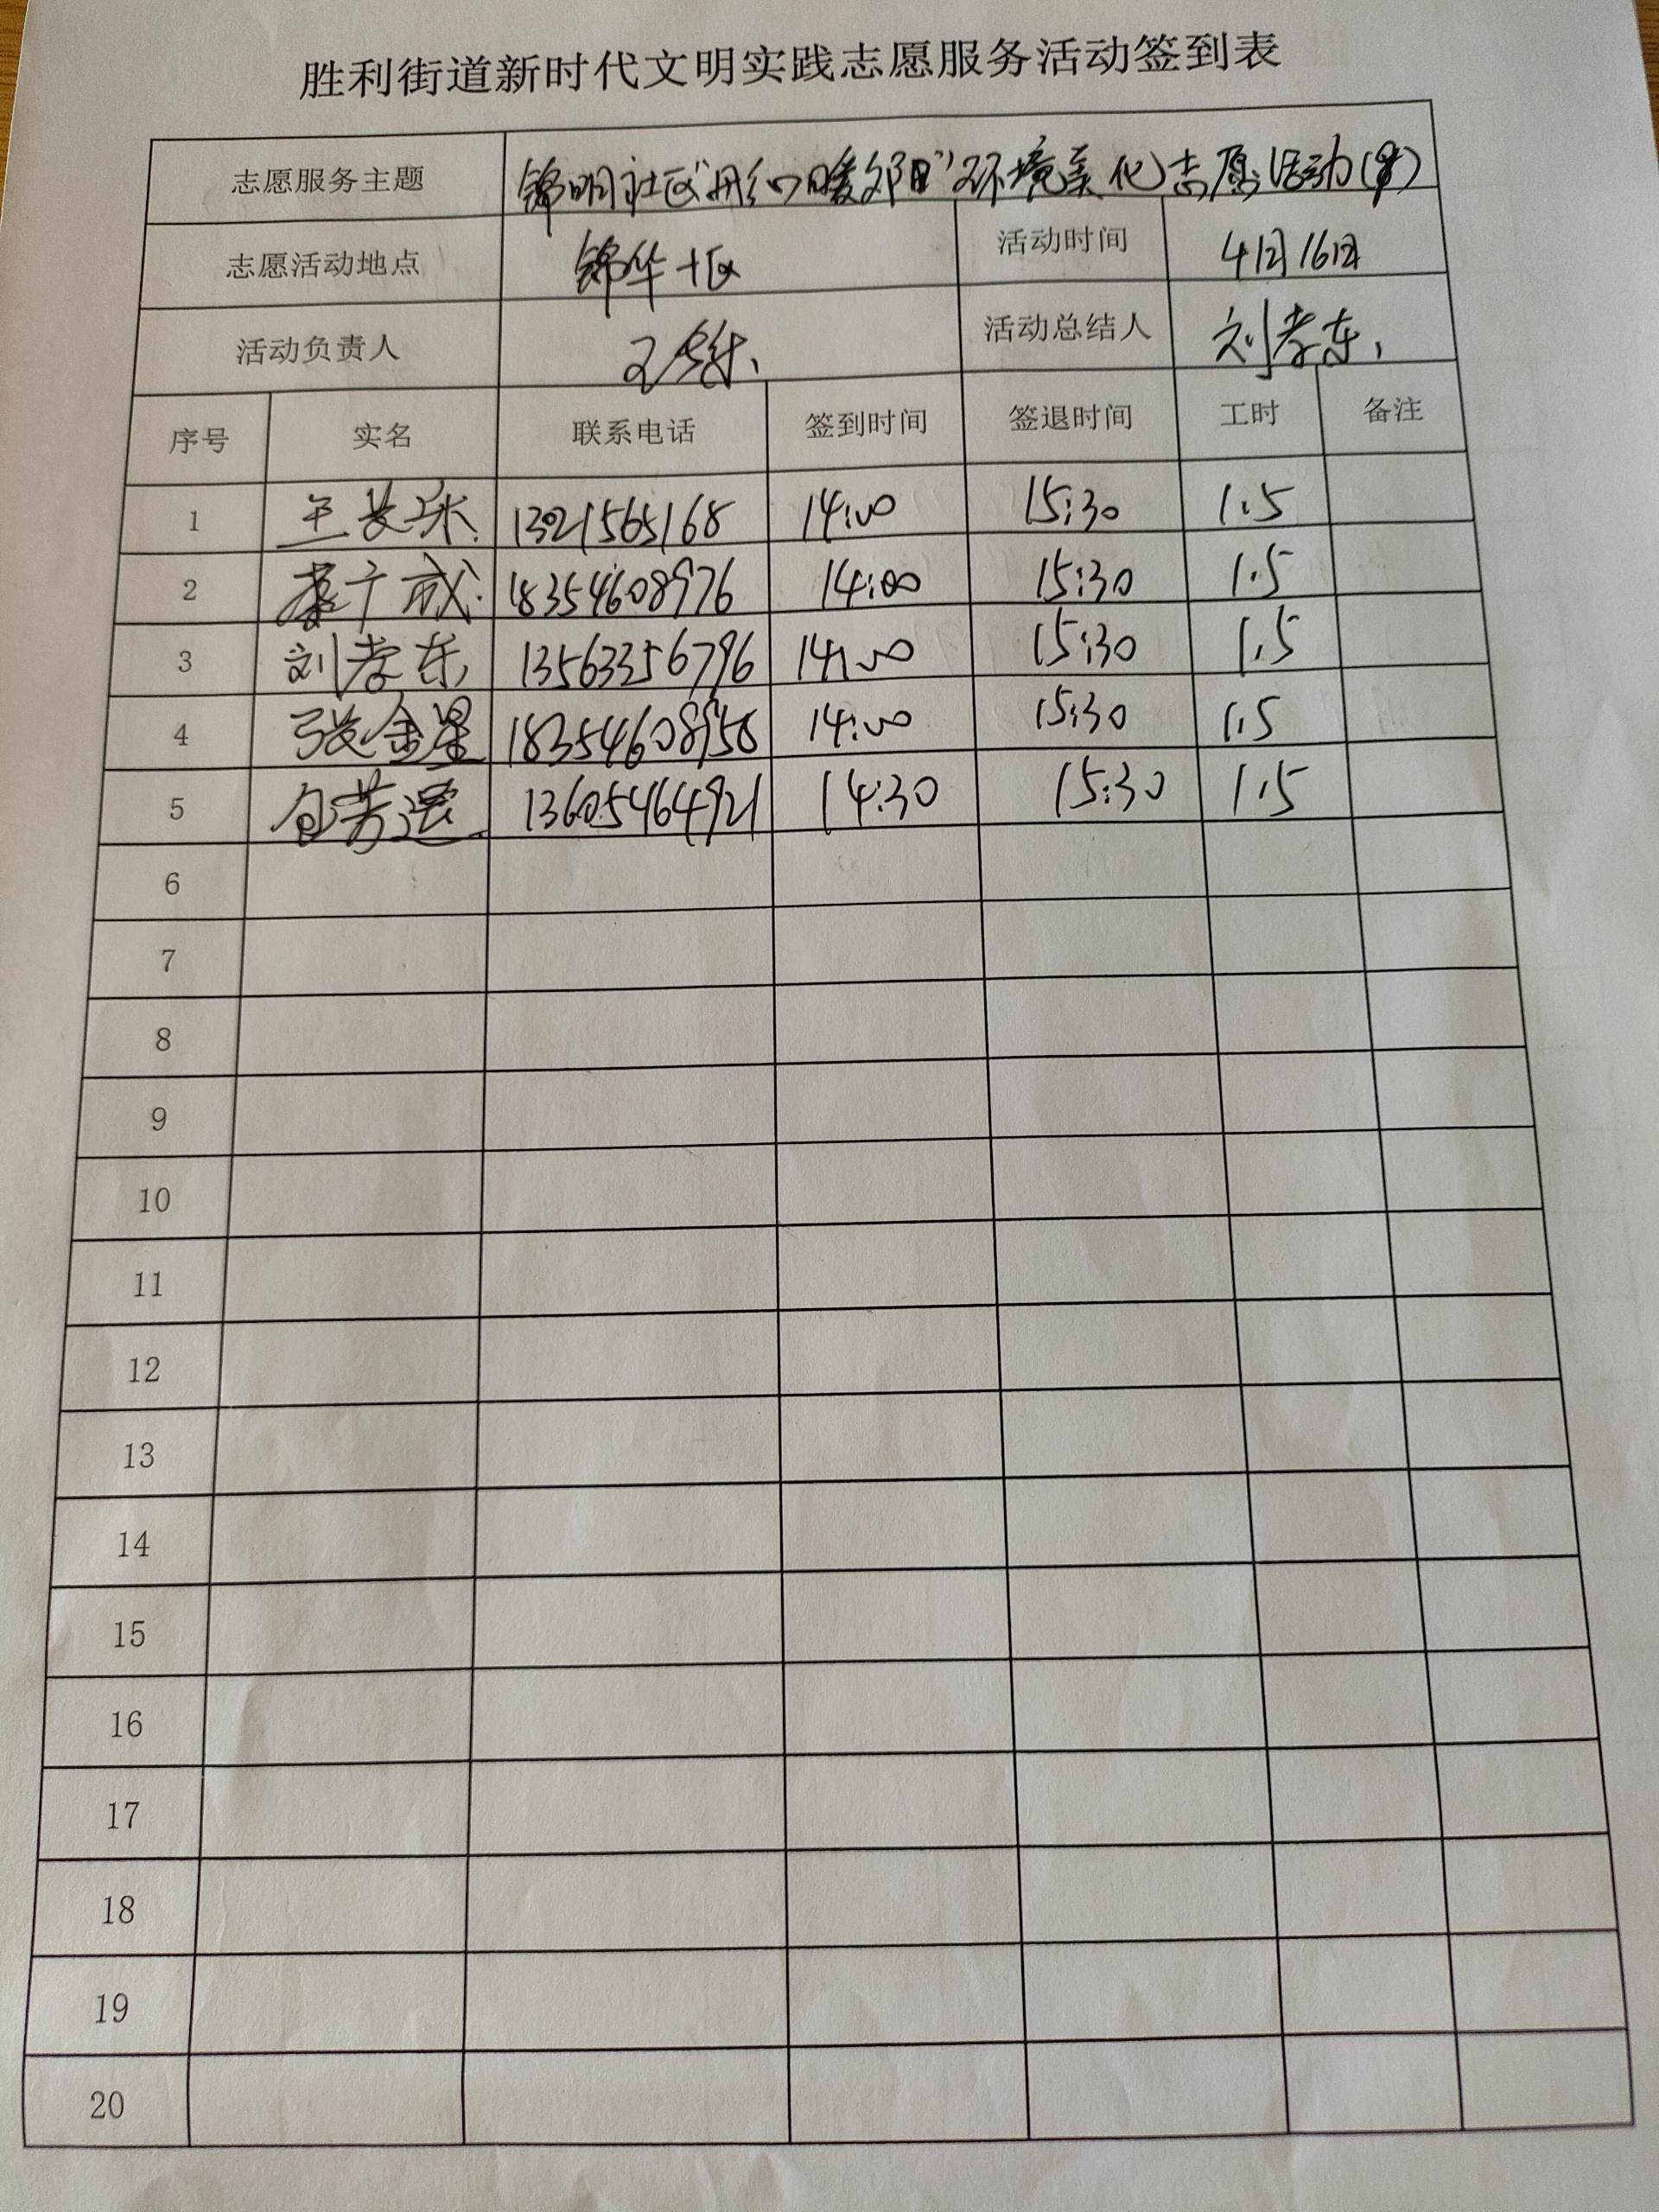 胜利街道新时代文明实践志愿服务活动签到表
志愿服务主题 锦明社区“彤心暖夕阳”环境美化志愿活动
志愿活动地点 锦华十区 活动时间 4月16日
活动负责人 活动总结人 刘孝东
序号 实名 联系电话 签到时间 签退时间 工时 备注
1 13021565168 14:00 15:30 1.5
2 18354608976 14:00 15:30 1.5
3 刘孝东 13563356796 14:00 15:30 1.5
4 张金星 18354608958 14:00 15:30 1.5
5 13605464921 14:30 15:30 1.5
6
7
8
9
10
11
12
13
14
15
16
17
18
19
20